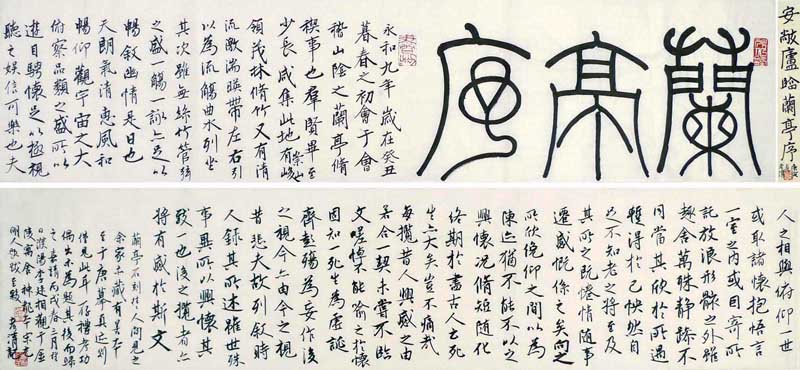 安敞廬臨蘭亭序
蘭亭序
永和九年歲在癸丑
暮春之初會于會
稽山陰之蘭亭脩
禊事也羣賢畢至
少長咸集此地有崇山峻
領茂林脩竹又有清
流激湍暎帶左右引
以為流觴曲水列坐
其次雖無絲竹管弦
之盛一觴一詠亦足以
暢敘幽情是日也
天朗氣清惠風和
暢仰觀宇宙之大
俯察品類之盛所以
遊目騁懷足以極視
聽之娛信可樂也夫
人之相與俯仰一世
或取諸懷抱悟言
一室之內或因寄所
託放浪形骸之外雖
趣舍萬殊靜躁不
同當其欣於所遇
暫得於己怏然自
足不知老之將至及
其所之既惓情隨事
遷感慨係之矣向之
所欣俛仰之間以為
陳迹猶不能不以之
興懷況脩短隨化
終期於盡古人云死
生亦大矣豈不痛哉
每攬昔人興感之由
若合一契未嘗不臨
文嗟悼不能喻之於懷
固知一死生為虛誕
齊彭殤為妄作後
之視今亦由今之視
昔悲夫故列敘時
人錄其所述雖世殊
事異所以興懷其
致一也後之攬者亦
將有感於斯文
蘭亭石刻行人間見之
余家亦藏有善本
至于唐摹真迹則
僅見此耳